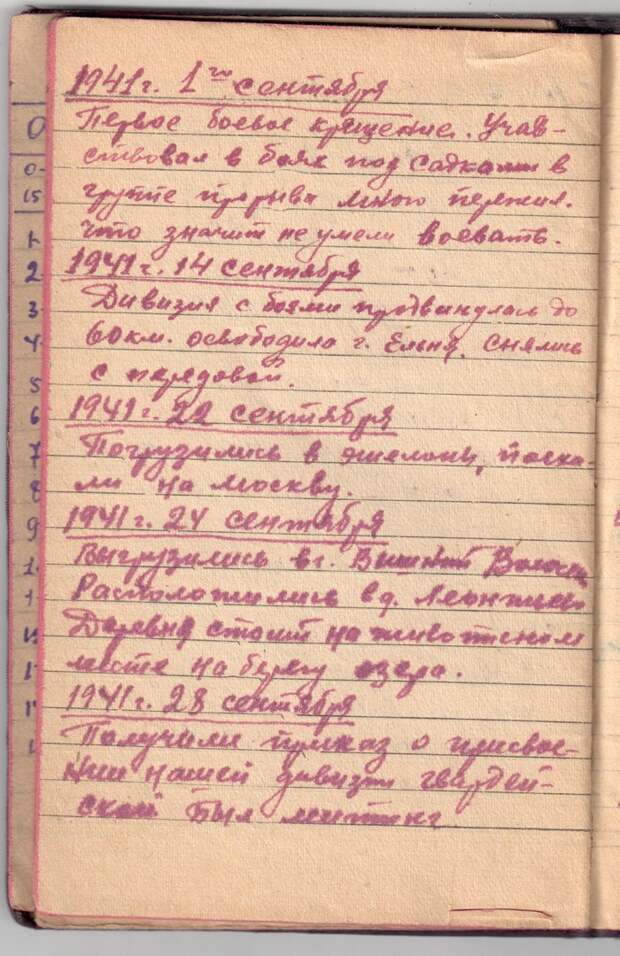 1941 г. 1го сентября
Первое боевое крещение. Учав-
ствовал в боях под Садками в
группе прорыва много пережил.
Что значит не умели воевать.
1941 г. 14 сентября
Дивизия с боями продвинулась до
60 км. освободила г. Ельня, снялись
с передовой.
1941 г. 22 сентября
Погрузились в эшелоны, поеха-
ли на Москву.
1941 г. 24 сентября
Выгрузились в г. Вышний Волочек
Расположились в д. Леонтьево
Деревня стоит на живописном
месте на берегу озера.
1941 г. 28 сентября
Получили приказ о присвое-
нии нашей дивизии гвардей-
ской был митинг